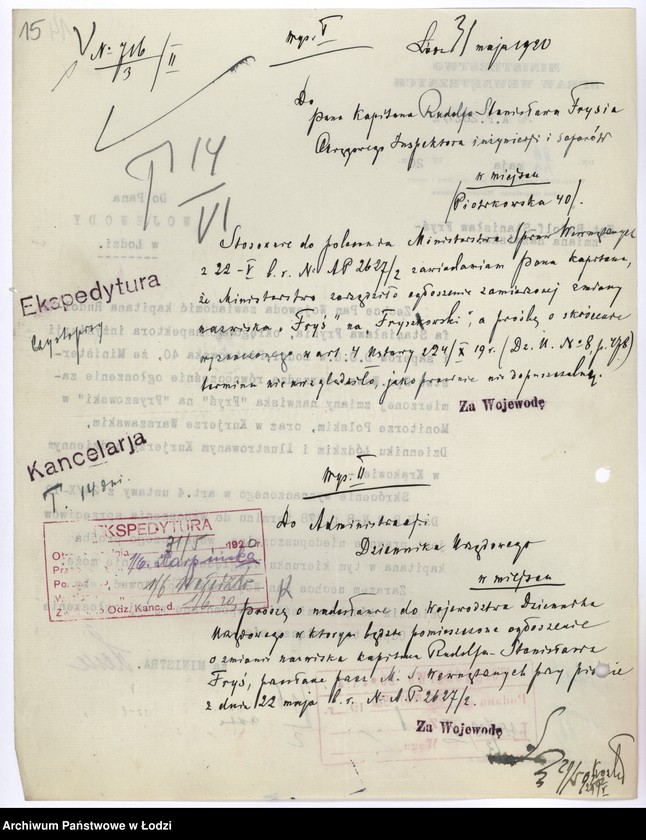 15
№ 716/3/II
wys. I
Łódź 31 maja 1920
Do
Pana Kapitana Rudolfa-Stanisława Frysia
Okręgowego Inspektora inżynierji i saperów
w miejscu
(Piotrkowska 40).
T 14/VI
Stosownie do polecenia Ministerstwa Spraw Wewnętrznych
z 22-V b.r. № AP 2627/2 zawiadamiam Pana Kapitana,
że Ministerstwo zarządziło ogłoszenie zamierzonej zmiany
nazwiska „Fryś" na „Fryszkowski", a prośby o skrócenie
wyznaczonego w art. 4 Ustawy z 24/X 19 r. (Dz. U. № 8, p. 478)
terminu nie uwzględniło, jako prawnie nie dopuszczalnej.
Za Wojewodę
Ekspedytura
Kancelarja
T. 14 dni.
wys. II
Do Administracji
Dziennika Urzędowego
w miejscu
EKSPEDYTURA
31/5 1920 r.
Odz. Kanc. d.
Proszę o nadesłanie do Województwa Dziennika
Urzędowego w którym będzie pomieszczone ogłoszenie
o zmianie nazwiska kapitana Rudolfa-Stanisława
Fryś, przesłane przez M. S. Wewnętrznych przy piśmie
z dnia 22 maja b.r. № A.P. 2627/2.
Za Wojewodę
29/5
Archiwum Państwowe w Łodzi